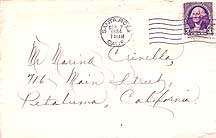 SANTA ROSA
1934
CALIF.
Mr Marino Crinella,
716 Main Street,
Petaluma, California